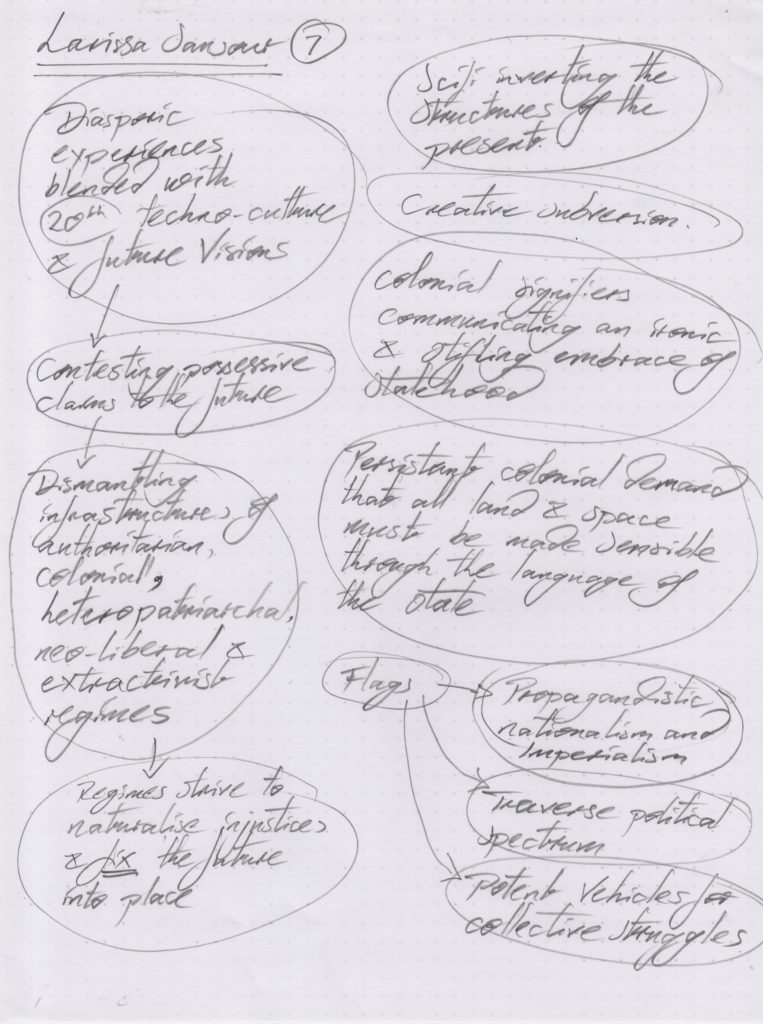 Larissa Sansour 7
Diasporic
experiences
blended with
20th techno-culture
& future Visions
Contesting possessive
claims to the future
Dismantling
infrastructures of
authoritarian,
colonial,
heteropatriarchal,
neo-liberal &
extractivist
regimes
Regimes strive to
naturalise injustices
& fix the future
into place
Scifi inverting the
structures of the
present.
Creative subversion.
colonial signifiers
communicating an ironic
& stifling embrace of
statehood
Persistant colonial demand
that all land & space
must be made sensible
through the language of
the state
Flags
Propagandistic
nationalism and
Imperialism
Traverse political
spectrum
Potent vehicles for
collective struggles